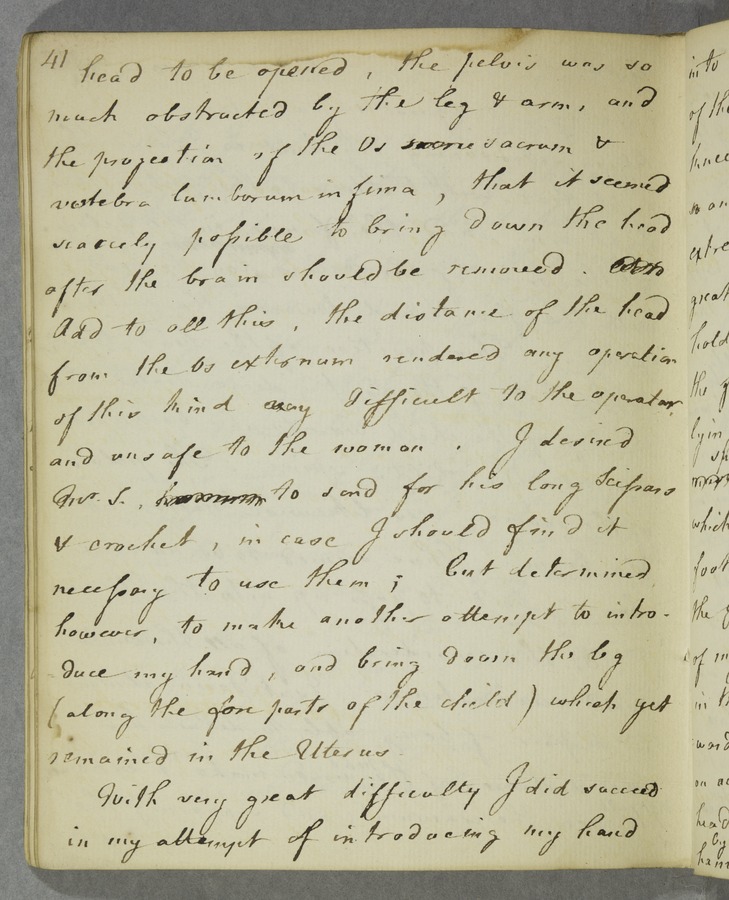 41
head to be opened, the pelvis was so
much obstructed by the leg & arm, and
the projection of the Os sacrum &
vertebra lumborum infima, that it seemed
scarcely possible to bring down the head
after the brain should be removed.
Add to all this, the distance of the head
from the Os externum rendered any operation
of this kind very difficult to the operator,
and unsafe to the woman. I desired
Mr. S. to send for his long Scissars
& crochet, in case I should find it
necessary to use them; but determined
however, to make another attempt to intro-
duce my hand, and bring down the leg
(along the fore parts of the child) which yet
remained in the Uterus.
With very great difficulty I did succeed
in my attempt of introducing my hand